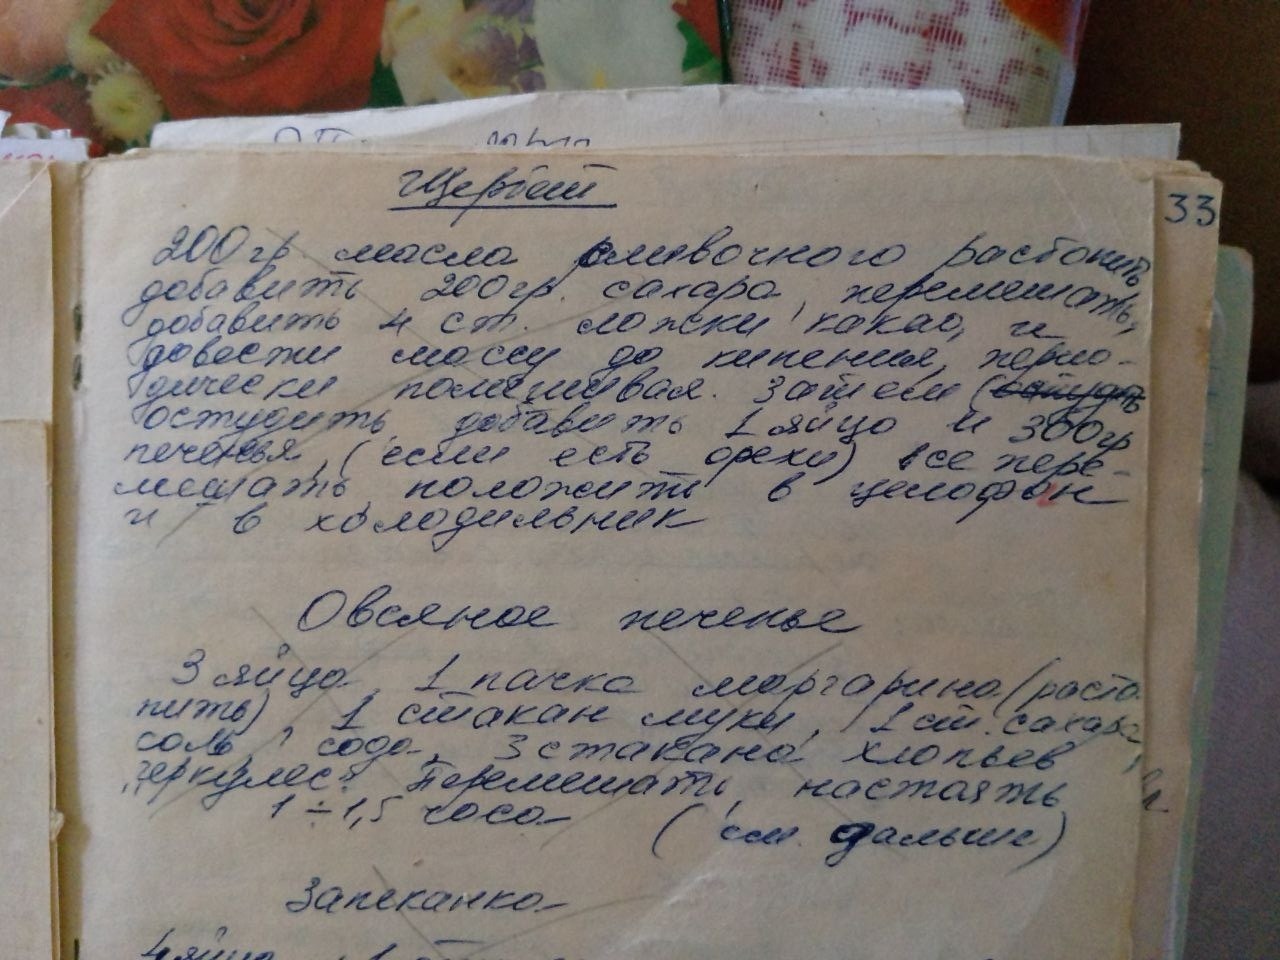 Щербет
33
200гр. масла сливочного растопить
добавить 200гр. сахара, перемешать,
добавить 4 ст. ложки какао, и
довести массу до кипения, перио-
дически помешивая. Затем (остудить
остудить, добавить 1 яйцо и 300гр
печенья, (если есть орехи) все пере-
мешать, положить в целофан
и в холодильник
Овсяное печенье
3 яйца, 1 пачка маргарина (расто-
пить), 1 стакан муки, 1 ст. сахара,
соль, сода, 3 стакана хлопьев
"геркулес". Перемешать, настоять
1 ÷ 1,5 часа (см. дальше)
Запеканка
4 яйца, 1